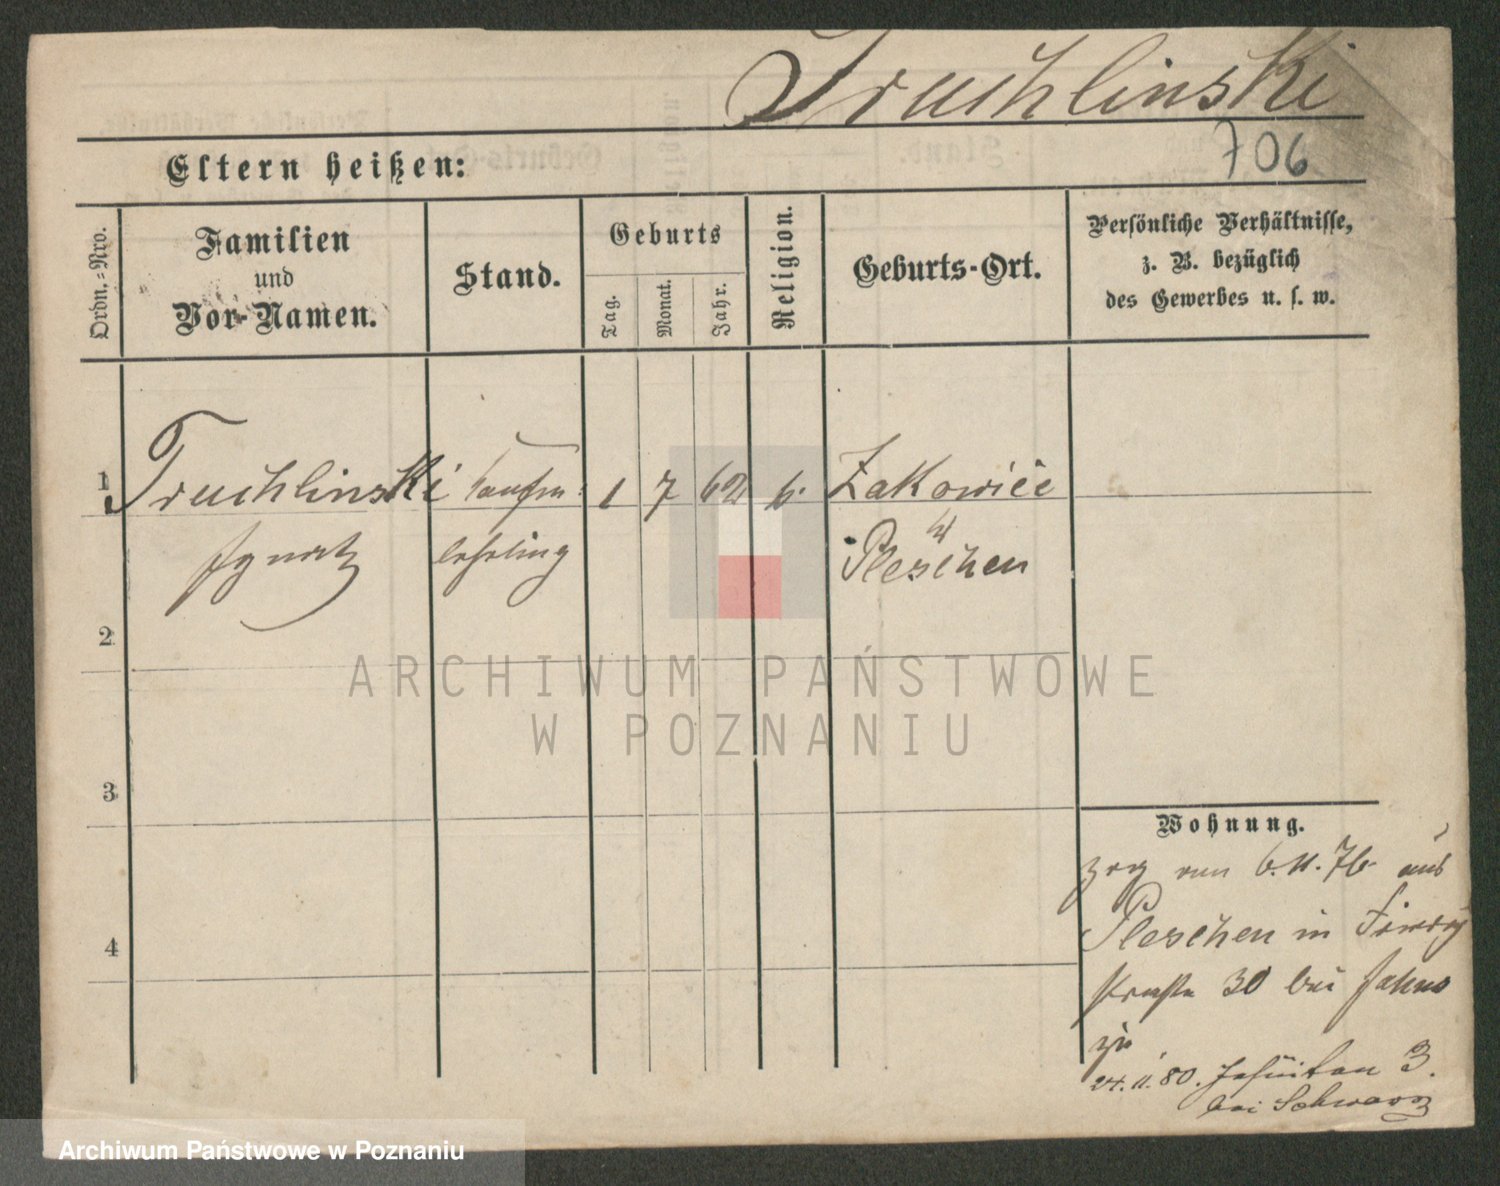 Truchlinski
706
Eltern heißen:
Ordn.-Nro.
Familien
und
Vor-Namen.
Stand.
Geburts
Tag.
Monat.
Jahr.
Religion.
Geburts-Ort.
Persönliche Verhältnisse,
z. B. bezüglich
des Gewerbes u. s. w.
1 Truchlinski Kaufm: 1 7 62 k. Zakowice
Ignatz lehrling Pleschen
2
3
4
Wohnung.
zog am 6.11.76 aus
Pleschen in
straße 30 bei
zu
24.11.80. Jesuiten 3.
bei Schwarz
ARCHIWUM PAŃSTWOWE
W POZNANIU
Archiwum Państwowe w Poznaniu